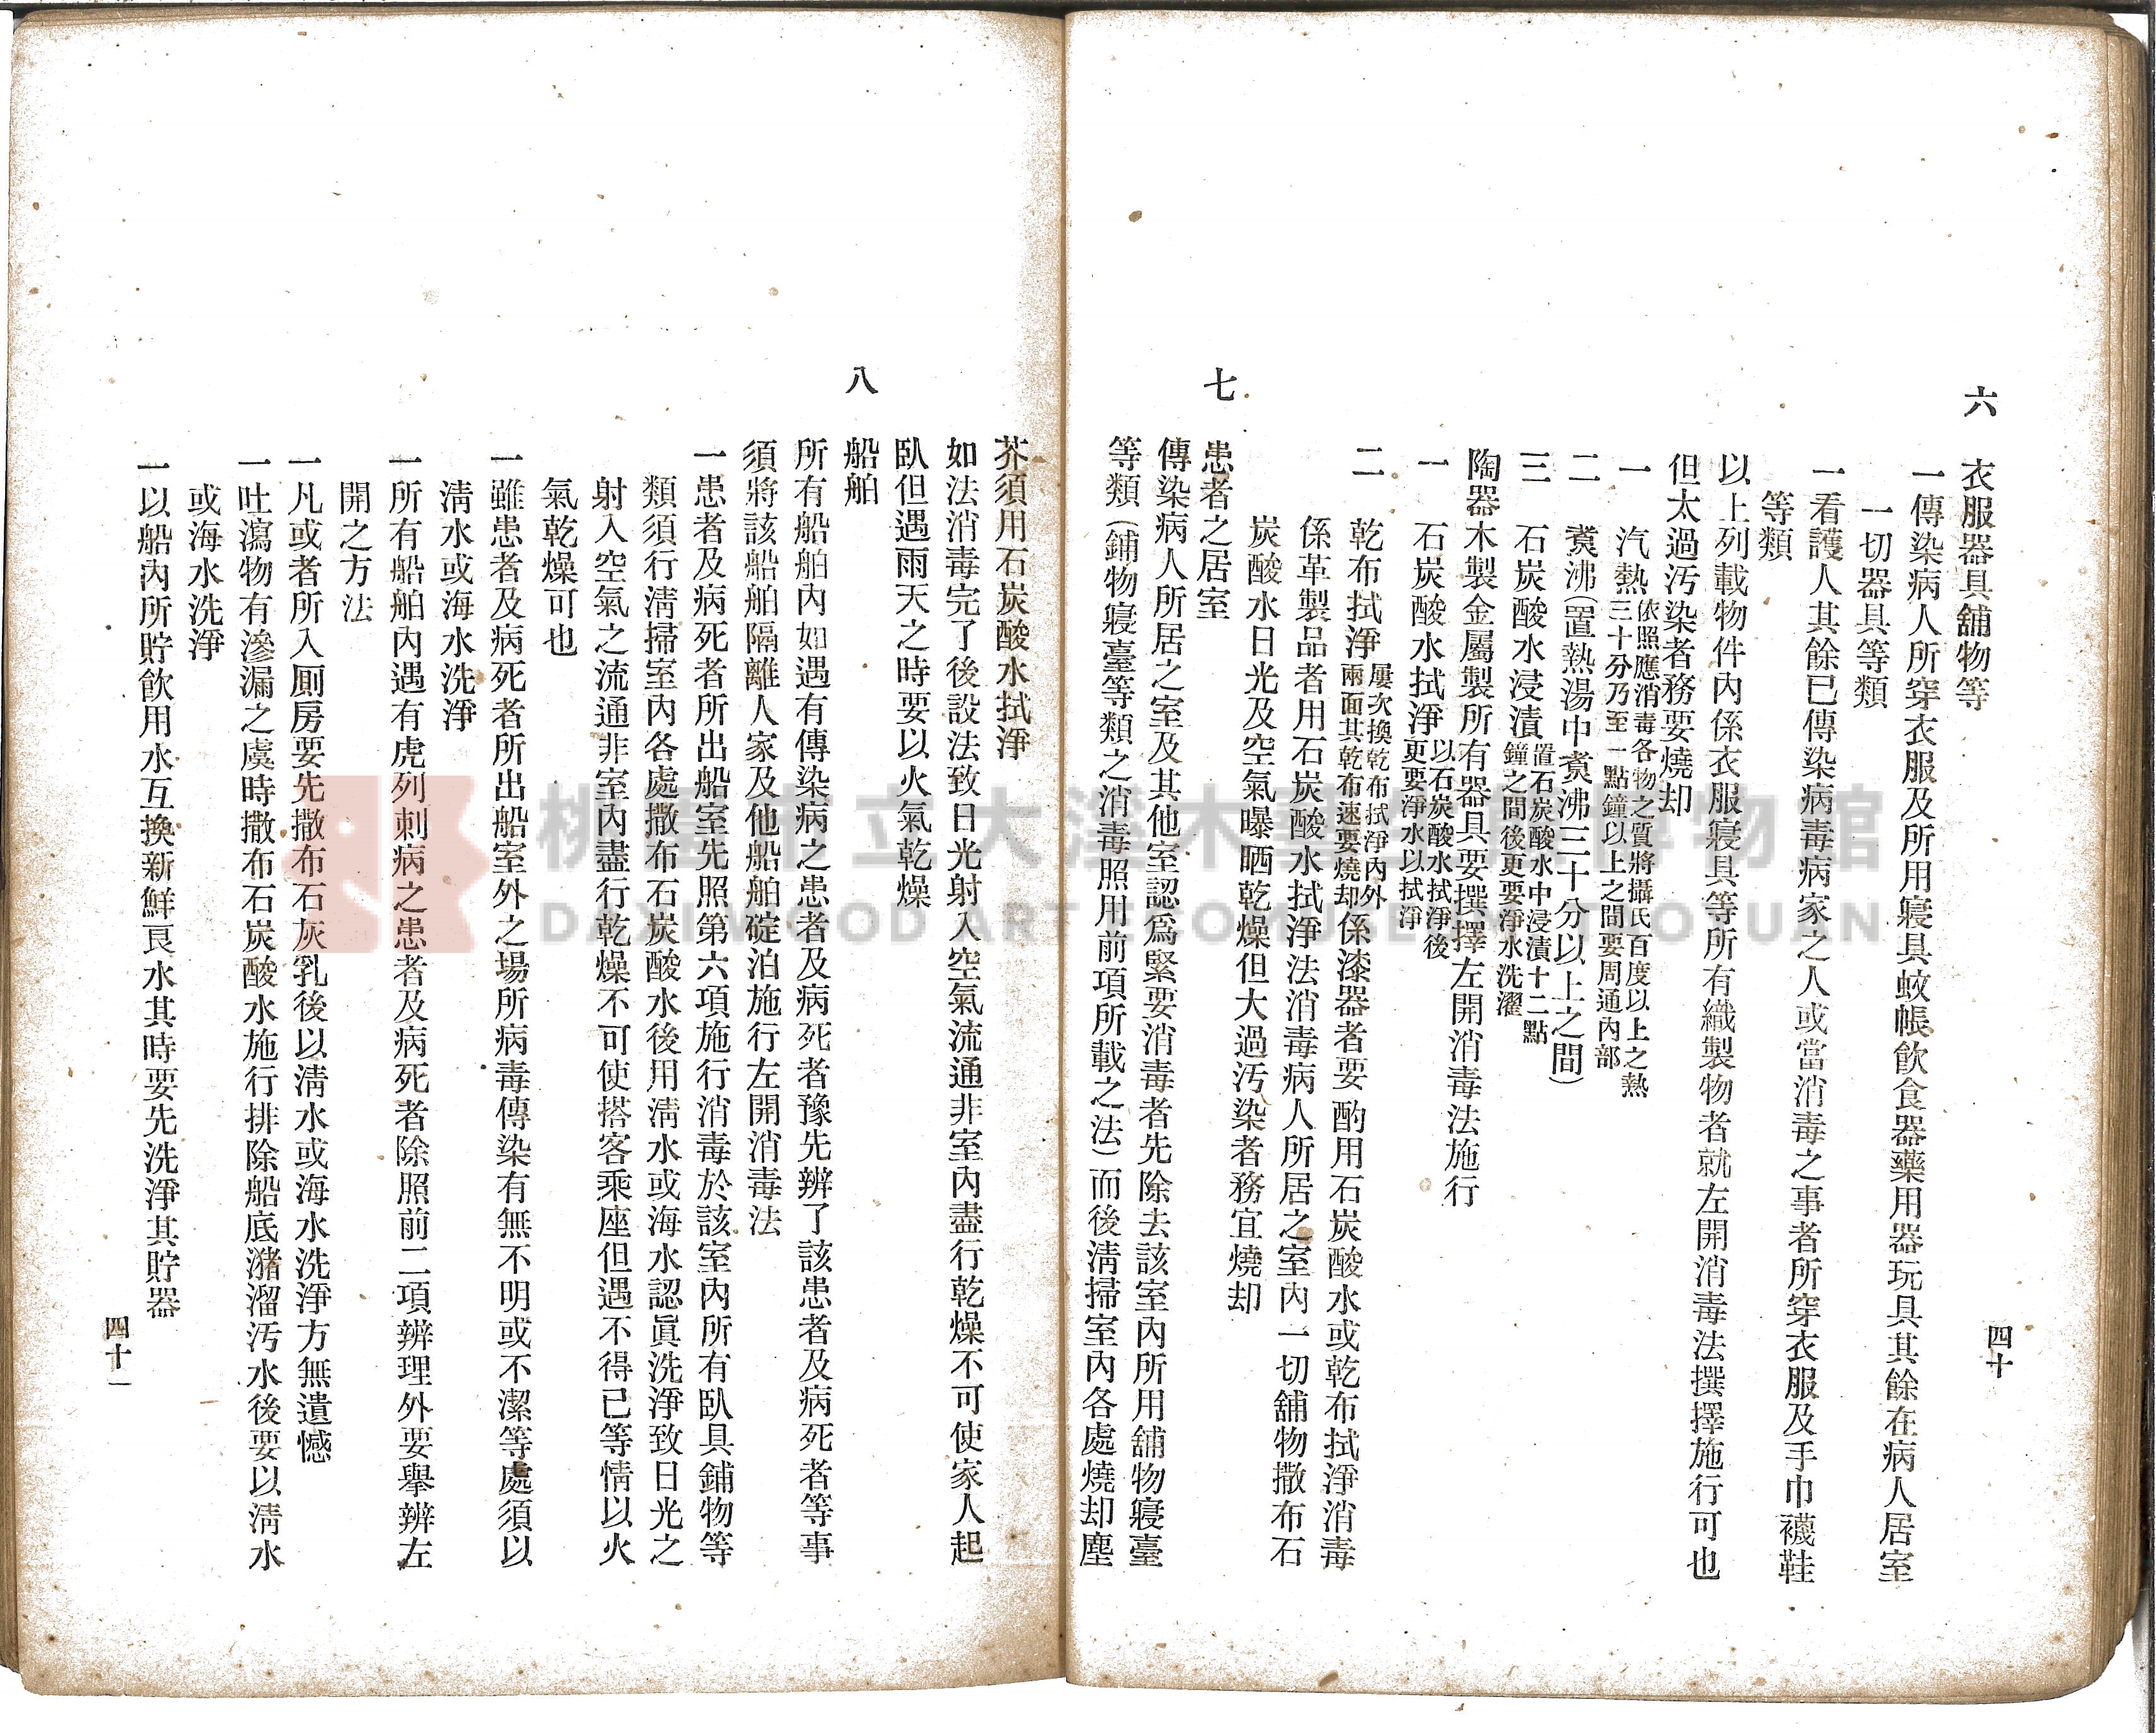 六　衣服器具舖物等
一傳染病人所穿衣服及所用寢具蚊帳飲食器藥用器玩具其餘在病人居室
一切器具等類
一看護人其餘已傳染病毒病家之人或當消毒之事者所穿衣服及手巾襪鞋
等類
以上列載物件內係衣服寢具等所有織製物者就左開消毒法撰擇施行可也
但太過汚染者務要燒却
一　汽熱依照應消毒各物之質將攝氏百度以上之熱
三十分乃至一點鐘以上之間要周通內部
二　煑沸（置熱湯中煑沸三十分以上之間）
三　石炭酸水浸漬置石炭酸水中浸漬十二點
鐘之間後更要淨水洗濯
陶器木製金屬製所有器具要撰擇左開消毒法施行
一　石炭酸水拭淨以石炭酸水拭淨後
更要淨水以拭淨
二　乾布拭淨屢次換乾布拭淨內外
兩面其乾布速要燒却係漆器者要酌用石炭酸水或乾布拭淨消毒
係革製品者用石炭酸水拭淨法消毒病人所居之室內一切舖物撒布石
炭酸水日光及空氣曝晒乾燥但大過汚染者務宜燒却
七　患者之居室
傳染病人所居之室及其他室認爲緊要消毒者先除去該室內所用舖物寢臺
等類（鋪物寢臺等類之消毒照用前項所載之法）而後淸掃室內各處燒却塵
四十
芥須用石炭酸水拭淨
如法消毒完了後設法致日光射入空氣流通非室內盡行乾燥不可使家人起
臥但遇雨天之時要以火氣乾燥
八　船舶
所有船舶內如遇有傳染病之患者及病死者豫先辨了該患者及病死者等事
須將該船舶隔離人家及他船舶碇泊施行左開消毒法
一患者及病死者所出船室先照第六項施行消毒於該室內所有臥具鋪物等
類須行淸掃室內各處撒布石炭酸水後用淸水或海水認眞洗淨致日光之
射入空氣之流通非室內盡行乾燥不可使搭客乘座但遇不得已等情以火
氣乾燥可也
一雖患者及病死者所出船室外之場所病毒傳染有無不明或不潔等處須以
淸水或海水洗淨
一所有船舶內遇有虎列刺病之患者及病死者除照前二項辨理外要擧辨左
開之方法
一凡或者所入厠房要先撒布石灰乳後以淸水或海水洗淨方無遺憾
一吐瀉物有滲漏之虞時撒布石炭酸水施行排除船底瀦溜汚水後要以淸水
或海水洗淨
一以船內所貯飮用水互換新鮮良水其時要先洗淨其貯器
四十一
桃園市立大溪木藝生態博物館
DAXI WOOD ART ECOMUSEUM TAOYUAN